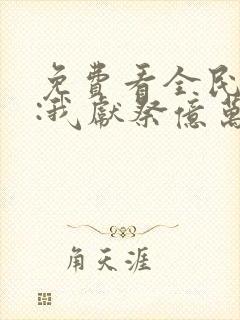 免費看全民
:我獻祭億萬
角天涯